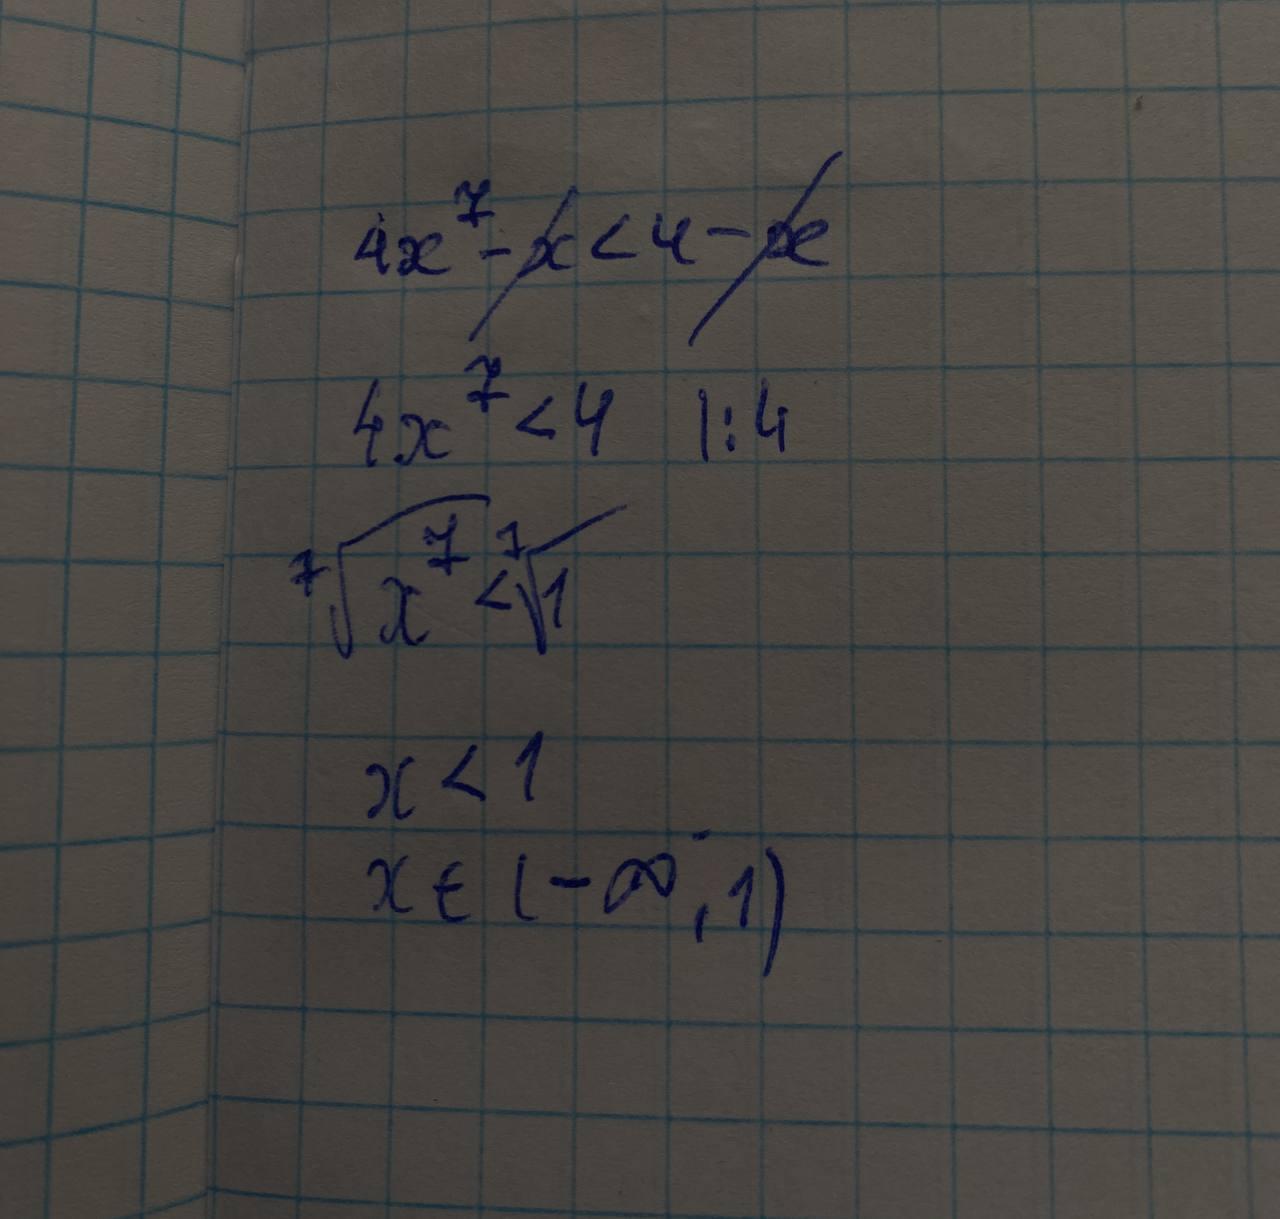 4x⁷ - x < 4 - x
4x⁷ < 4 |:4
⁷√x⁷ < ⁷√1
x < 1
x ∈ (-∞, 1)